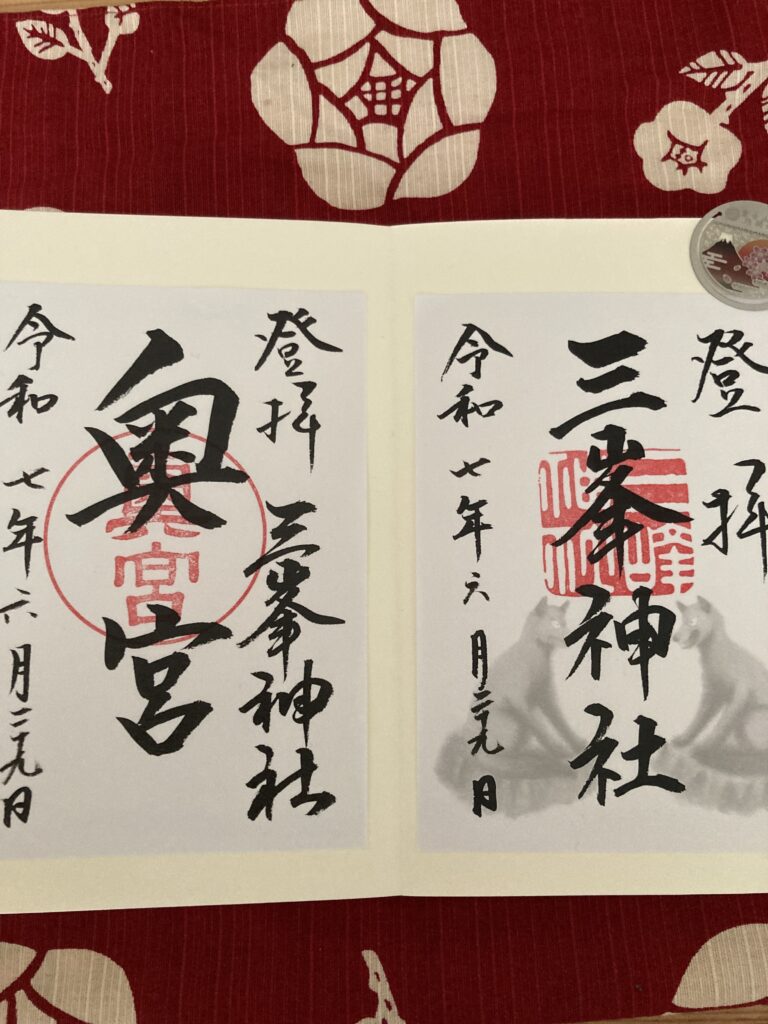 登拝
三峯神社
令和七年六月二十九日
登拝 三峯神社
奥宮
奥宮
令和七年六月二十九日